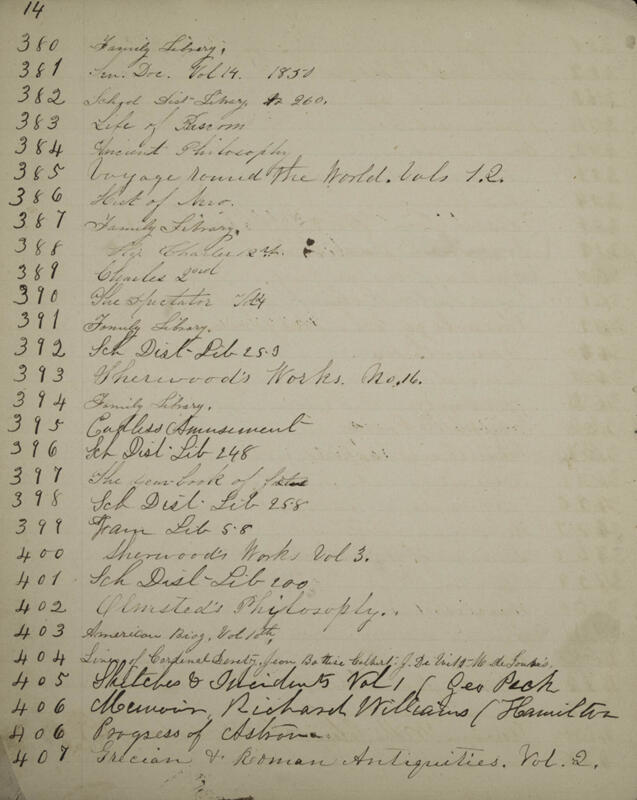 14
380 Family Library.
381 Sen. Doc. Vol 14. 1850
382 School Dist Library No 260.
383 Life of Bascom
384 Ancient Philosophy
385 Voyage round the World. Vols 1.2.
386 Hist of
387 Family Library.
388 Charles 12th.
389 Charles 2nd
390 The Spectator
391 Family Library.
392 Sch Dist Lib 253
393 Sherwood's Works. No. 16.
394 Family Library.
395 Endless Amusement
396 Sch Dist Lib 248
397 The year book of
398 Sch Dist Lib 258
399 Fam Lib 58
400 Sherwood's Works Vol 3.
401 Sch Dist Lib 200
402 Olmsted's Philosophy.
403 American Biog. Vol 10th.
404 Lives of Cardinal De Retz, Jean Battise Colbert. J. De Witt M de
405 Sketches & Incidents Vol 1 ( Geo Peck
406 Memoir, Richard Williams ( Hamilton
406 Progress of Astron
407 Grecian & Roman Antiquities. Vol. 2.